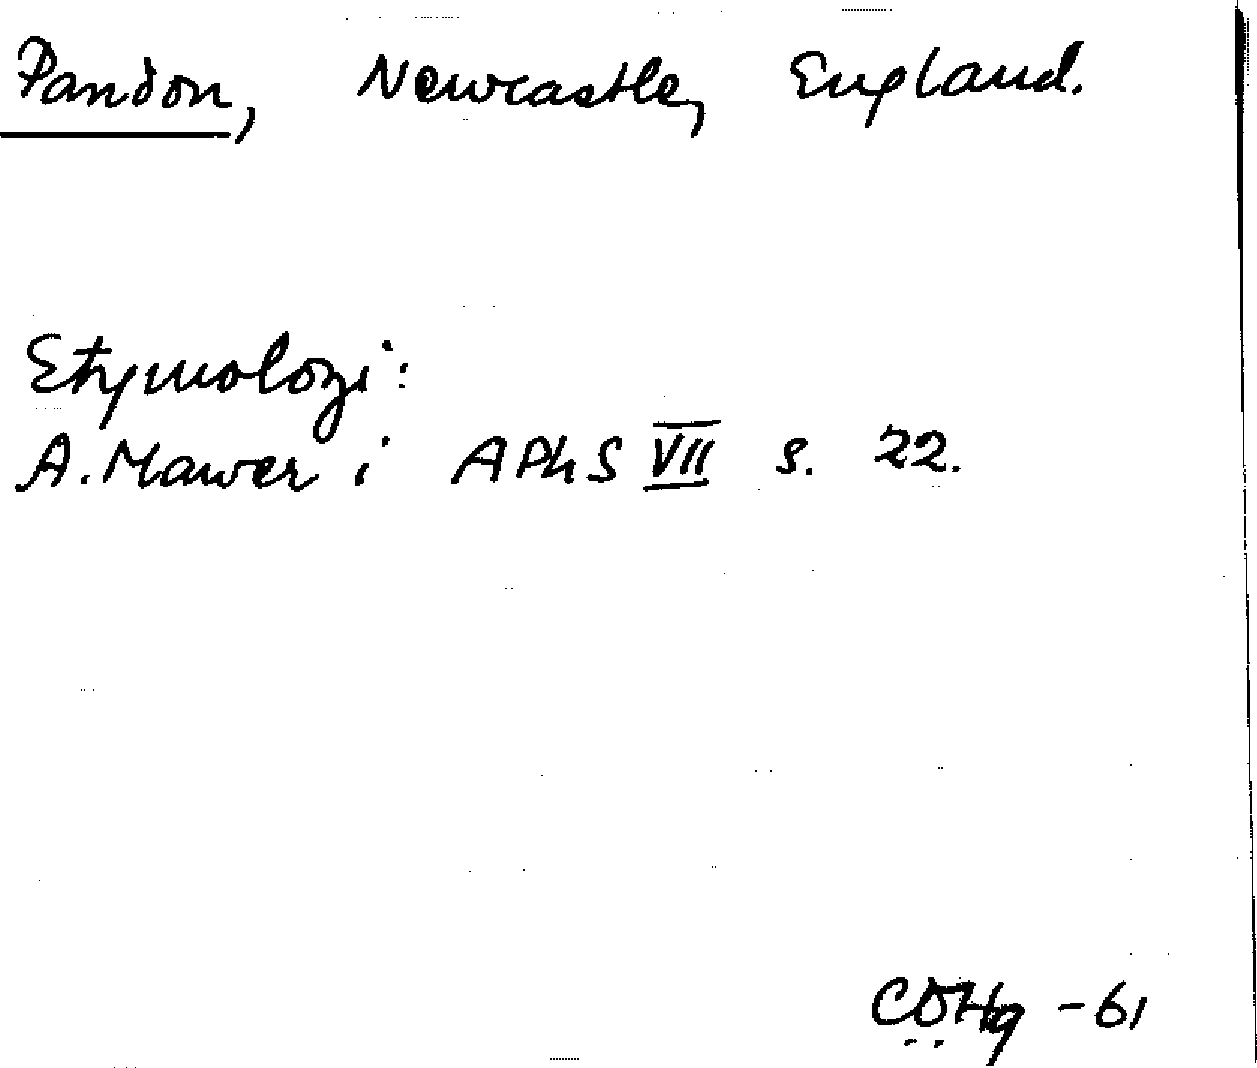 Pandon, Newcastle, England.
Etymologi:
A. Mawer i APhS VII s. 22.
-61